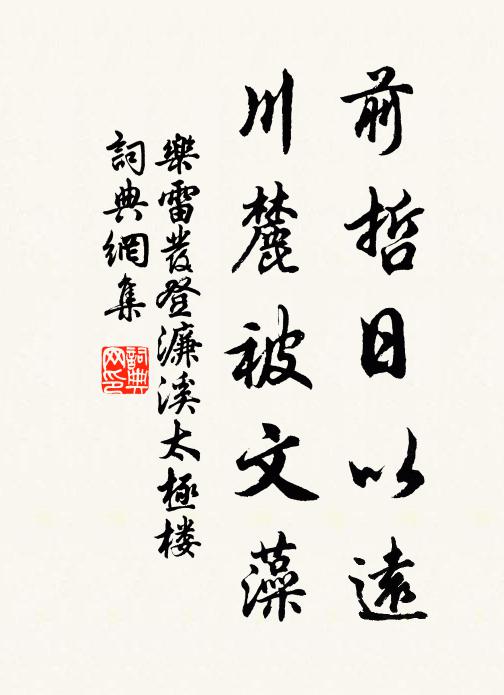 前哲日以遠
川麓被文藻
樂雷發登濂溪太極楼
詞典網集
詞典网印